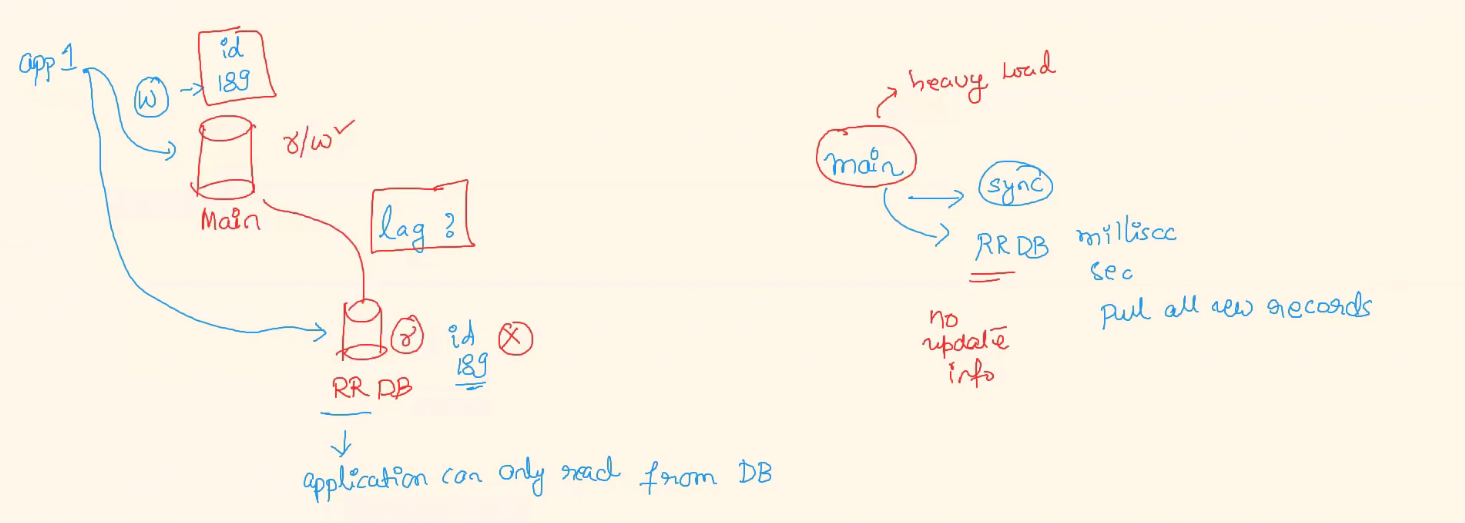 app 1
id
189
W
r/w
Main
lag ?
r
id
189
X
RR DB
application can only read from DB
heavy load
main
sync
RR DB
millisec
sec
Pull all new records
no
update
info